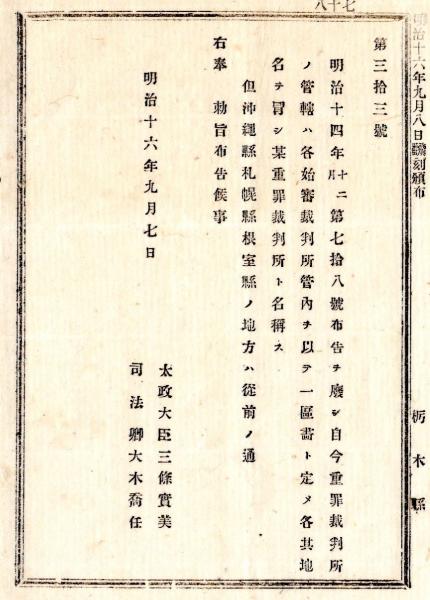 七十八
明治十六年九月八日飜刻頒布
栃木縣
第三拾三號
明治十四年十二月第七拾八號布告ヲ廢シ自今重罪裁判所
ノ管轄ハ各始審裁判所管內ヲ以テ一區畫ト定メ各其地
名ヲ冒シ某重罪裁判所ト名稱ス
但沖繩縣札幌縣根室縣ノ地方ハ從前ノ通
右奉　勅旨布告候事
明治十六年九月七日
太政大臣三條實美
司法卿大木喬任